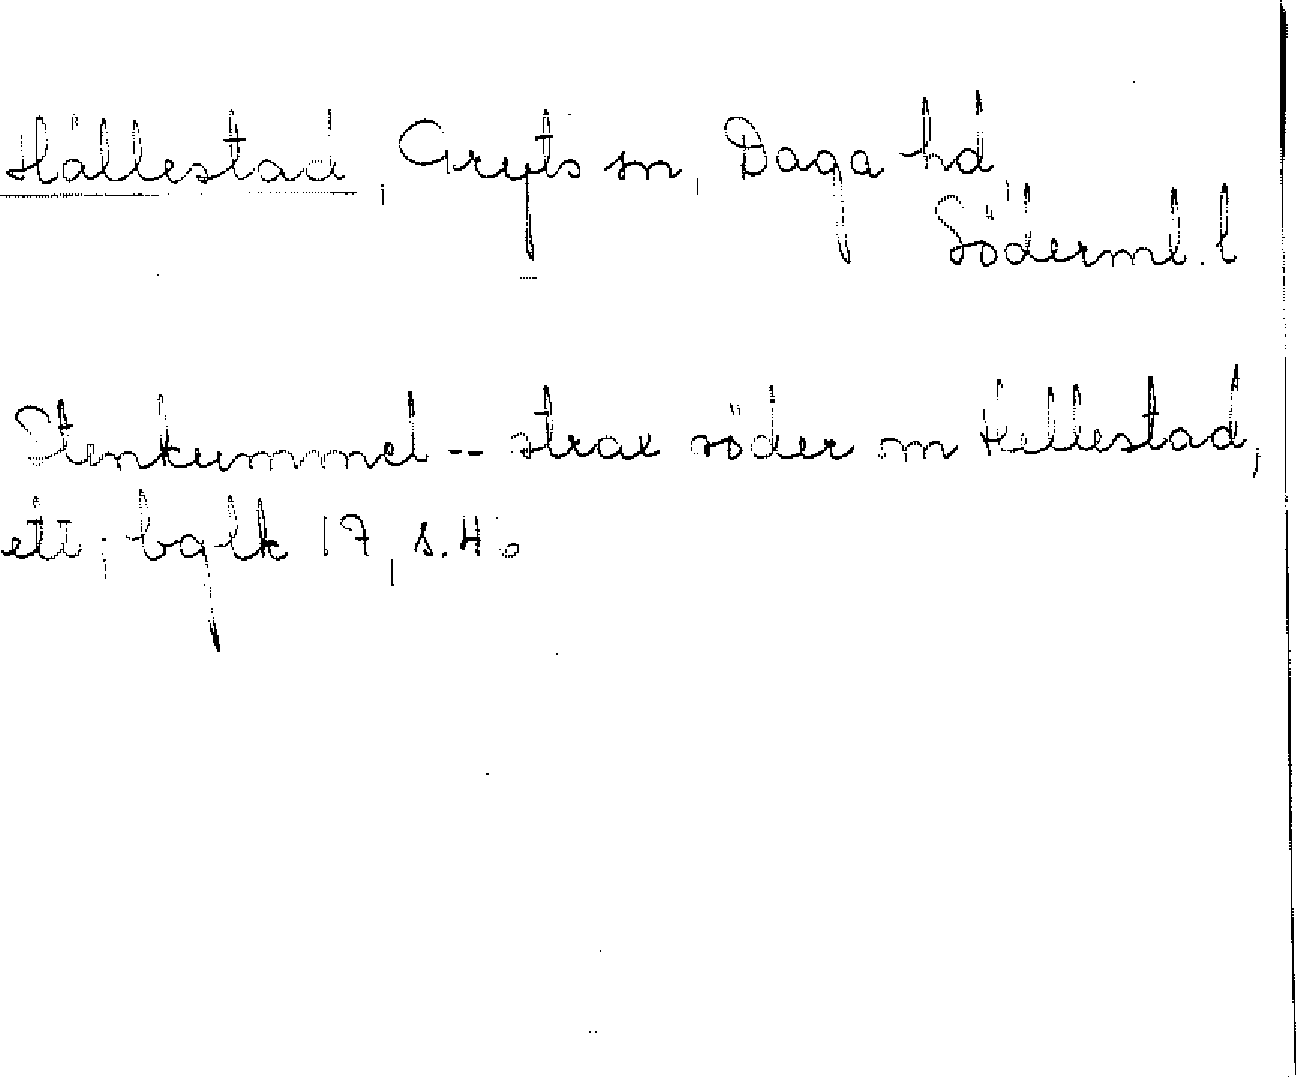 Hällestad, Gryts sn, Daga hd,
Söderml. l
Stenkummel -- strax söder om Hellestad,
ett; bglk 17, s. 46